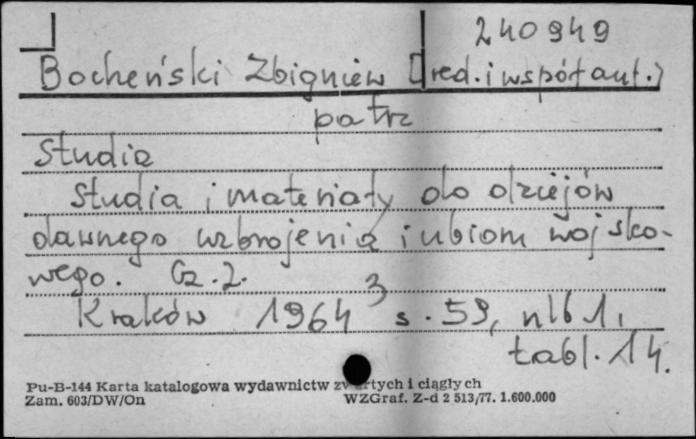 240949
Bocheński Zbigniew [red. i współaut.]
patrz
Studia
Studia i materiały do dziejów
dawnego uzbrojenia i ubioru wojsko-
wego. Cz. 2.
Kraków 1964 3 s. 59, nlb 1,
tabl. 14.
Pu-B-144 Karta katalogowa wydawnictw zwartych i ciągłych
Zam. 603/DW/On WZGraf. Z-d 2 513/77. 1.600.000